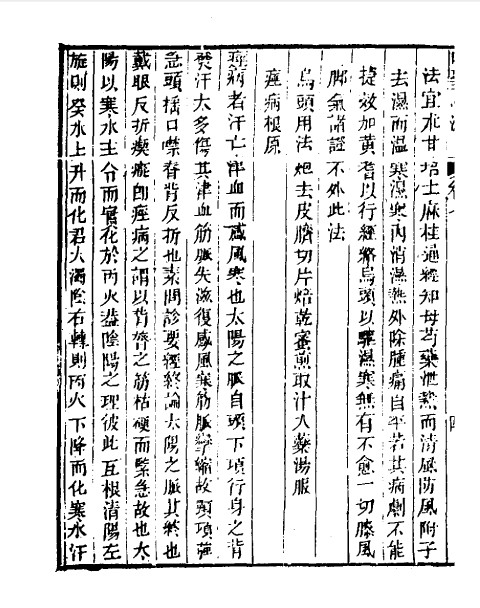 法宜朮甘培土麻桂通經知母芍藥泄熱而清風防風附子
去濕而溫寒濕寒內消濕熱外除腫痛自平若其病劇不能
捷效加黃耆以行經絡烏頭以驅濕寒無有不愈一切膝風
脚氣諸證不外此法
烏頭用法炮去皮臍切片焙乾蜜煎取汁入藥湯服
痙病根原
痙病者汗亡津血而感風寒也太陽之脈自頭下項行身之背
發汗太多傷其津血筋脈失滋復感風寒筋脈攣縮故頸項強
急頭搖口噤脊背反折也素問診要經終論太陽之脈其終也
戴眼反折瘈瘲卽痙病之謂以背膂之筋枯硬而緊急故也太
陽以寒水主令而實化於丙火益陰陽之理彼此互根清陽左
旋則癸水上升而化君火濁陰右轉則丙火下降而化寒水汗